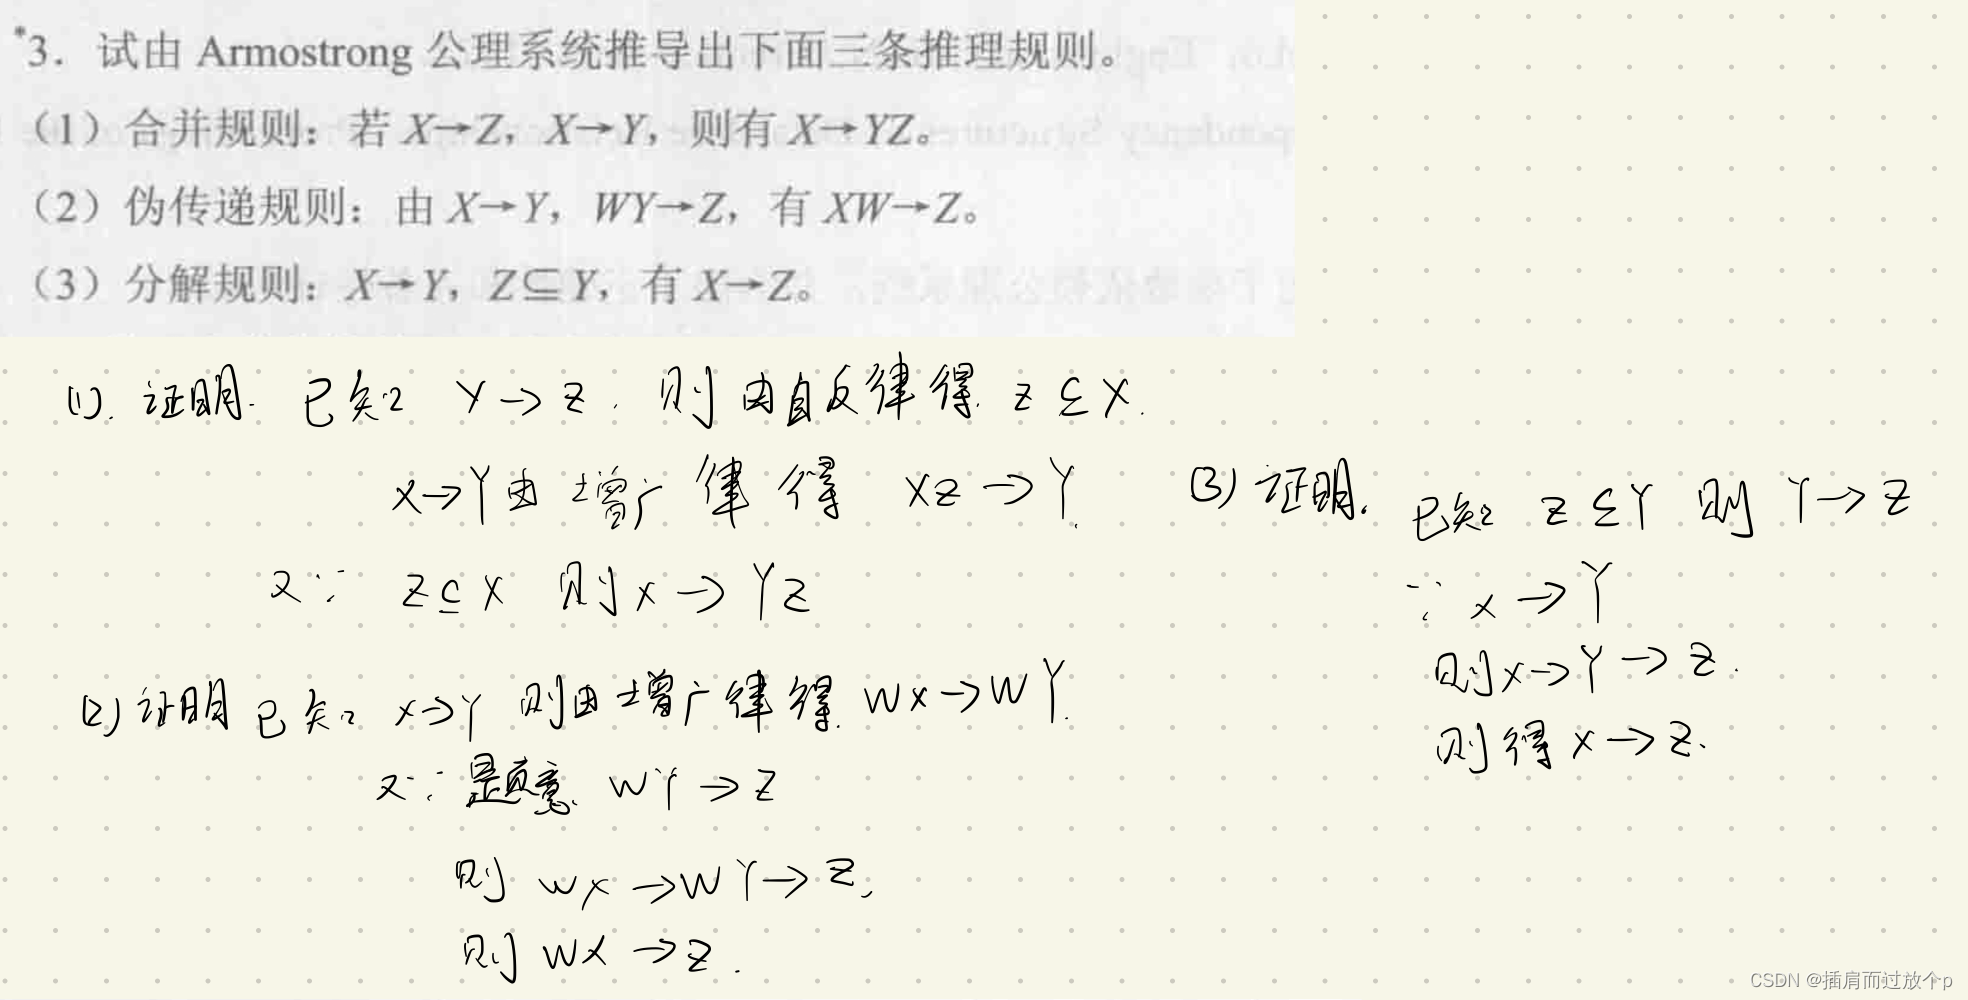 *3. 试由 Armostrong 公理系统推导出下面三条推理规则。
(1)合并规则:若 X→Z,X→Y,则有 X→YZ。
(2)伪传递规则:由 X→Y,WY→Z,有 XW→Z。
(3)分解规则:X→Y,Z⊆Y,有 X→Z。
(1). 证明. 已知 Y→Z. 则由自反律得. Z⊆X.
X→Y由增广律得 XZ→Y.
又∵ Z⊆X 则X→YZ
(2)证明 已知 X→Y 则由增广律得. WX→WY.
又∵ 题意. WY→Z
则 WX→WY→Z,
则 WX→Z.
(3)证明. 已知 Z⊆Y 则 Y→Z
∵ X→Y
则X→Y→Z.
则得 X→Z.
CSDN @插肩而过放个p